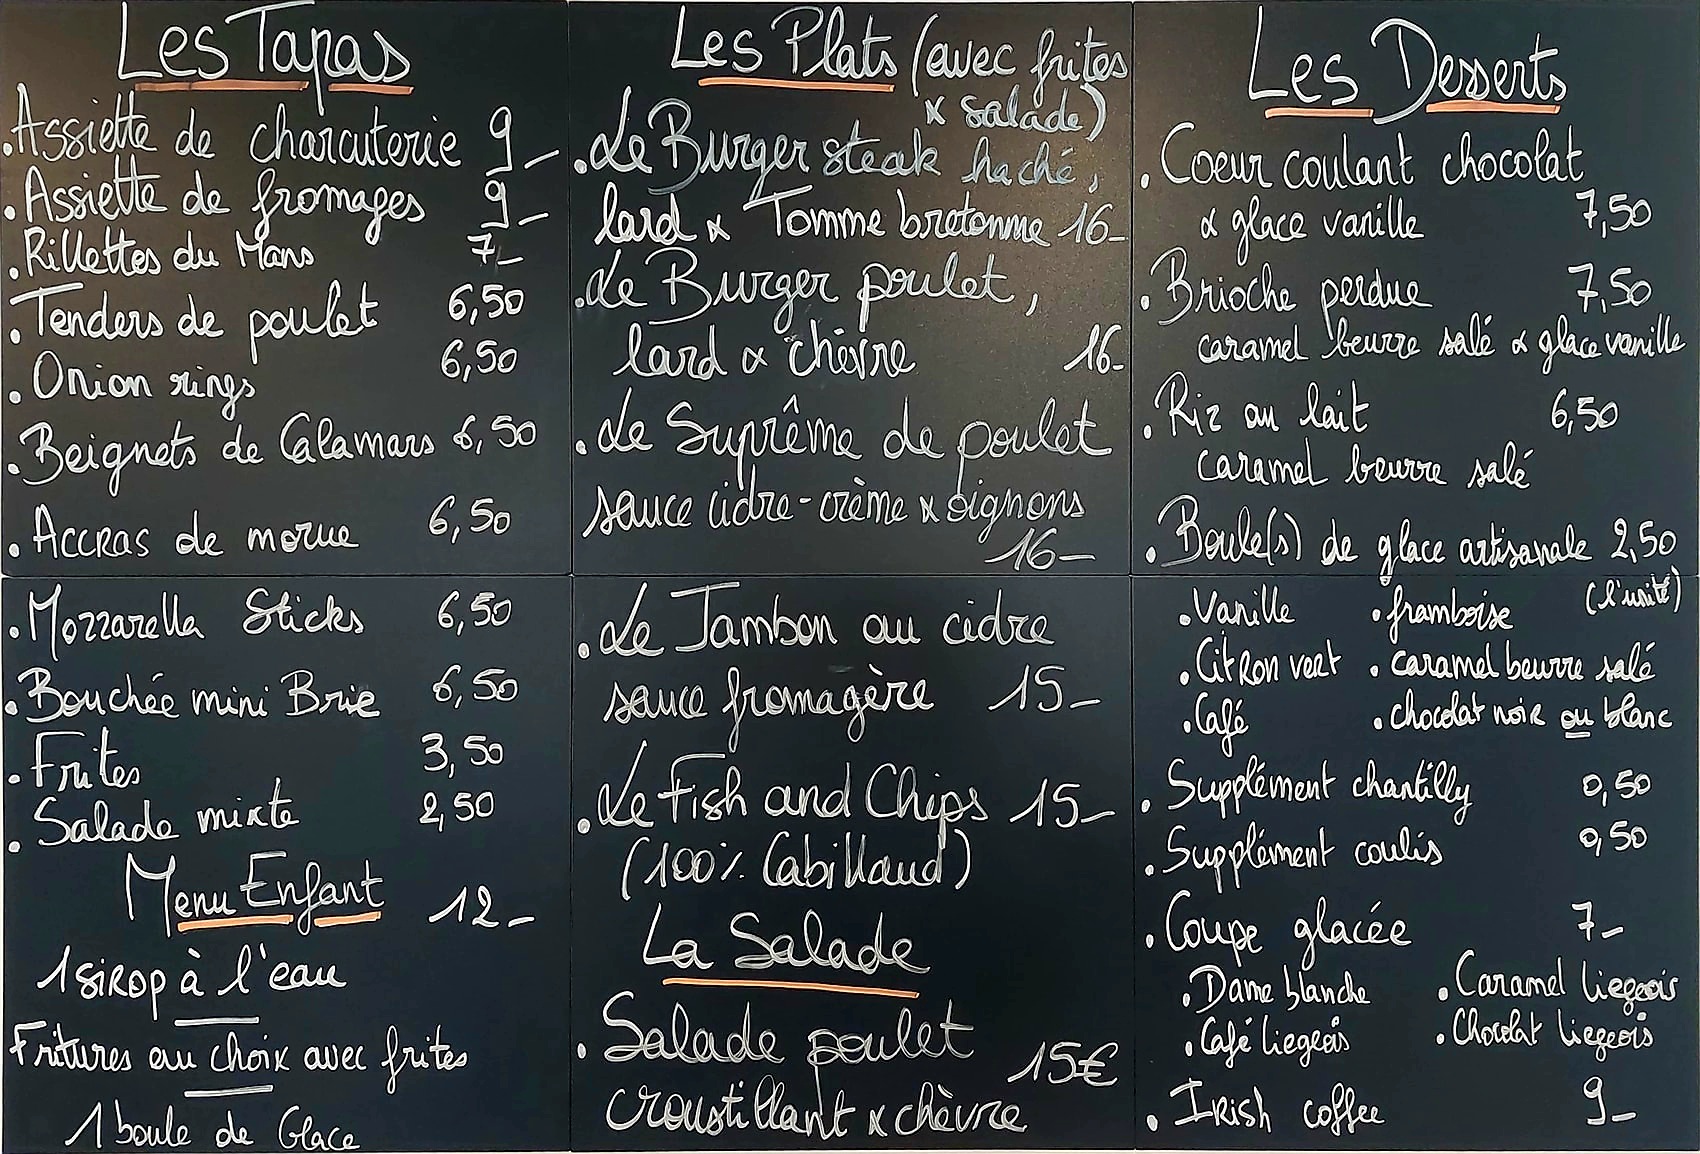 Les Tapas
.Assiette de charcuterie 9_
.Assiette de fromages 9_
.Rillettes du Mans 7_
.Tenders de poulet 6,50
.Onion rings 6,50
.Beignets de Calamars 6,50
.Accras de morue 6,50
.Mozzarella Sticks 6,50
.Bouchée mini Brie 6,50
.Frites 3,50
.Salade mixte 2,50
Menu Enfant 12_
1 sirop à l'eau
Fritures au choix avec frites
1 boule de Glace
Les Plats (avec frites
x salade)
.Le Burger steak haché,
lard x Tomme bretonne 16_
.Le Burger poulet,
lard x chèvre 16_
.Le Suprême de poulet
sauce cidre-crème x oignons
16_
.Le Jambon au cidre
sauce fromagère 15_
.Le Fish and Chips 15_
(100% Cabillaud)
La Salade
.Salade poulet
croustillant x chèvre 15€
Les Desserts
.Coeur coulant chocolat
x glace vanille 7,50
.Brioche perdue 7,50
caramel beurre salé x glace vanille
.Riz au lait 6,50
caramel beurre salé
.Boule(s) de glace artisanale 2,50
(l'unité)
.Vanille .framboise
.Citron vert .caramel beurre salé
.Café .chocolat noir ou blanc
.Supplément chantilly 0,50
.Supplément coulis 0,50
.Coupe glacée 7_
.Dame blanche .Caramel liegeois
.Café liegeois .Chocolat liegeois
.Irish coffee 9_